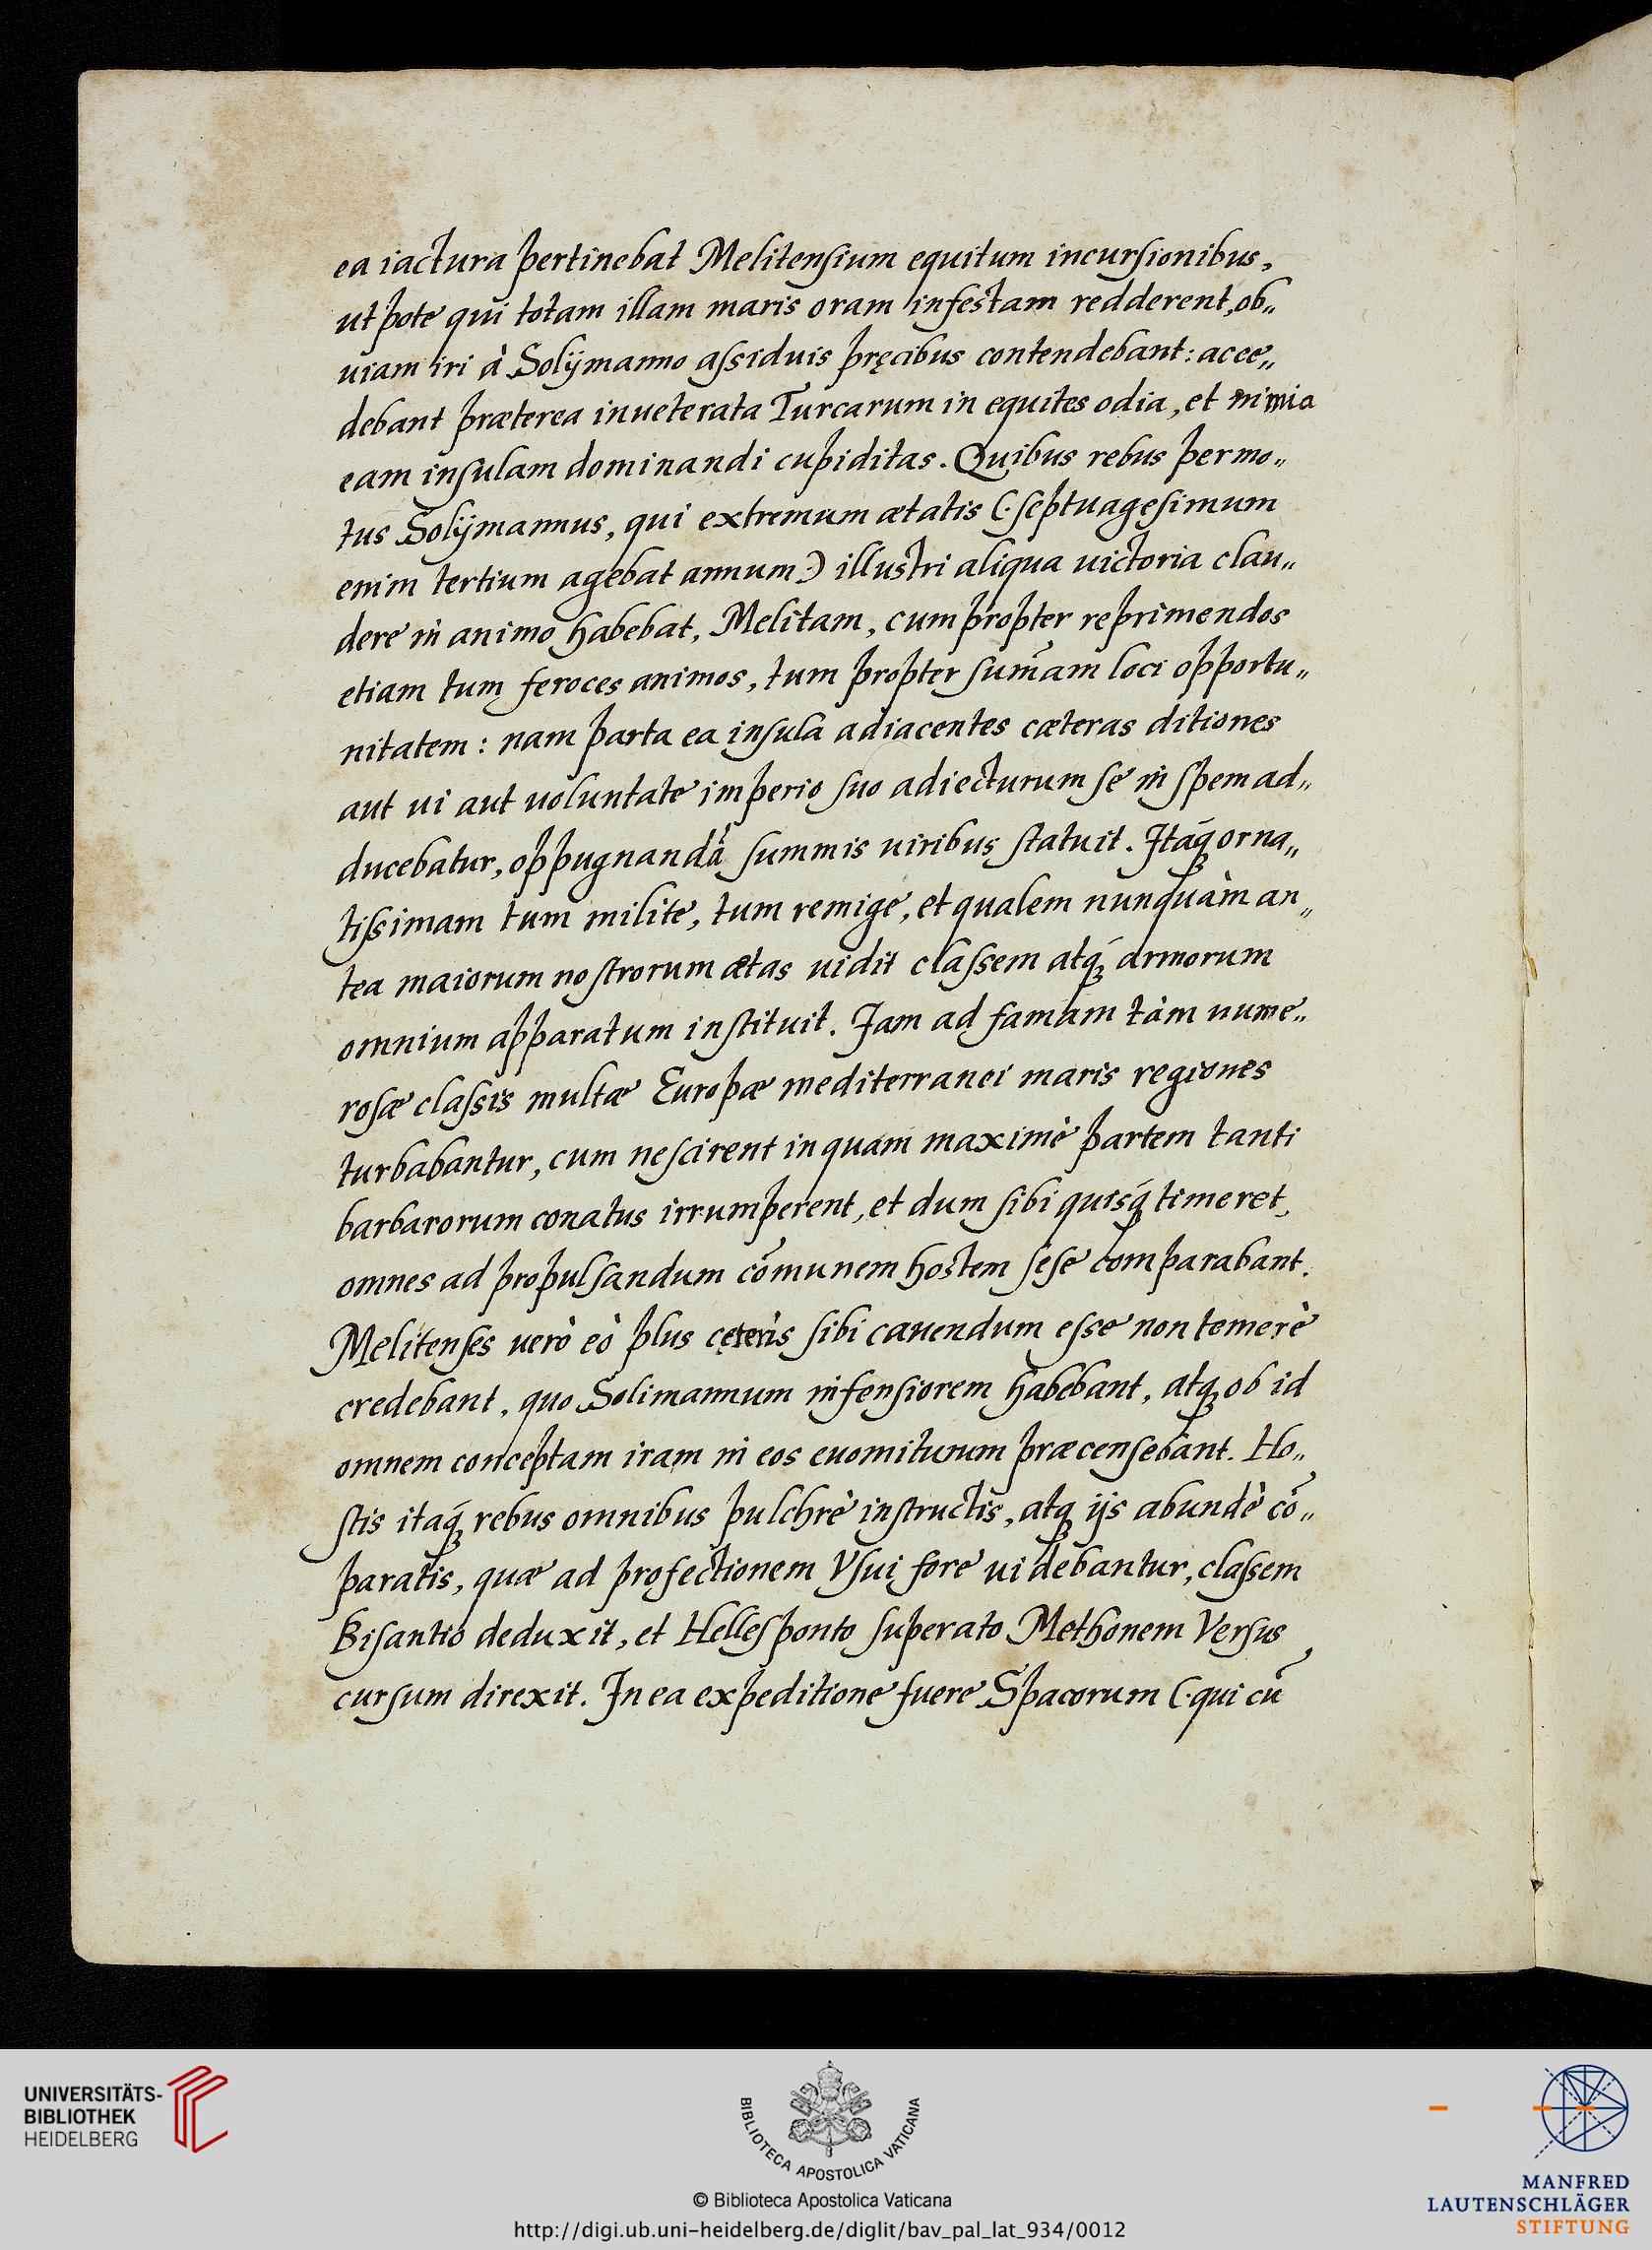 ea iactura pertinebat Melitensium equitum incursionibus,
utpote qui totam illam maris oram infestam redderent, ob„
uiam iri à Solÿmanno assiduis pręcibus contendebant: acce„
debant præterea inueterata Turcarum in equites odia, et nimia
eam insulam dominandi cupiditas. Quibus rebus permo„
tus Solÿmannus, qui extremum ætatis (septuagesimum
enim tertium agebat annum) illustri aliqua uictoria clau„
dere in animo habebat, Melitam, cum propter reprimendos
etiam tum feroces animos, tum propter sum̃am loci opportu„
nitatem: nam parta ea insula adiacentes cæteras ditiones
aut ui aut uoluntate imperio suo adiecturum se in spem ad„
ducebatur, oppugnandã summis uiribus statuit. Itaq́ꝫ orna„
tissimam tum milite, tum remige, et qualem nunquàm an„
tea maiorum nostrorum ætas uidit classem atq́ꝫ armorum
omnium apparatum instituit. Jam ad famam tàm nume„
rosæ classis multæ Europæ mediterranei maris regiones
turbabantur, cum nescirent in quam maximè partem tanti
barbarorum conatus irrumperent, et dum sibi quisq́ꝫ timeret,
omnes ad propulsandum cõmunem hostem sese comparabant.
Melitenses uerò eò plus cęteris sibi cauendum esse non temerè
credebant, quo Solimannum infensiorem habebant, atqꝫ ob id
omnem conceptam iram in eos euomiturum præcensebant. Ho„
stis itaq́ꝫ rebus omnibus pulchrè instructis, atqꝫ ijs abundè cõ„
paratis, quæ ad profectionem Vsui fore uidebantur, classem
Bisantio deduxit, et Hellesponto superato Methonem Versus
cursum direxit. In ea expeditione fuere Spacorum (qui cũ
UNIVERSITÄTS-
BIBLIOTHEK
HEIDELBERG
BIBLIOTECA APOSTOLICA VATICANA
© Biblioteca Apostolica Vaticana
http://digi.ub.uni-heidelberg.de/diglit/bav_pal_lat_934/0012
MANFRED
LAUTENSCHLÄGER
STIFTUNG